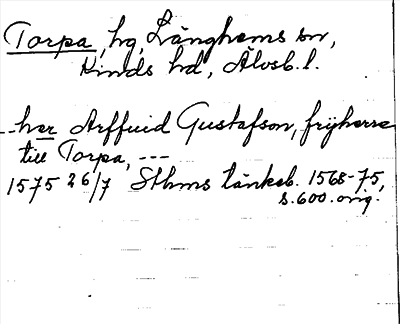 Torpa, hg, Länghems sn,
Kinds hd, Älvsb. l.
--her Arffuid Gustafson, frijherre
till Torpa, ---
1575 26/7 Sthms tänkeb. 1568-75,
s. 600. orig.